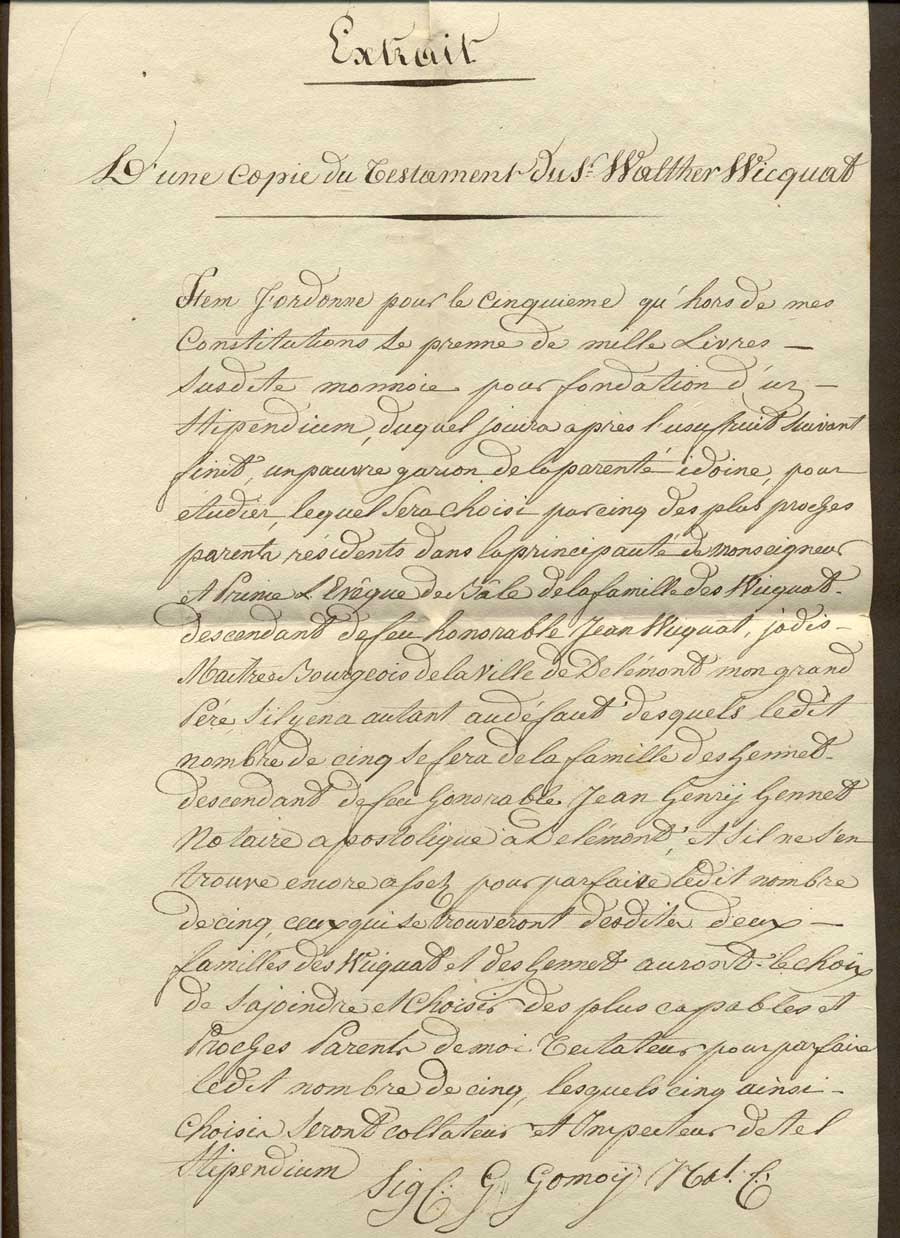 Extrait
D'une Copie du Testament du Sr. Walther Wicquat
Item J'ordonne pour le cinquieme qu'hors de mes
Constitutions se prenne de mille Livres –
susdite monnoie pour fondation d'un –
Stipendium, duquel jouira après l'usufruit suivant
finit, un pauvre garçon de la parenté idoine, pour
étudier, lequel sera choisi par cinq des plus proches
parents résidents dans la principauté de monseigneur
et Prince L'Evêque de Bâle de la famille des Wicquat-
descendant de feu honorable Jean Wicquat, jadis –
Maitre Bourgeois de la Ville de Delémont mon grand
Pére, s'il y en a autant au défaut desquels ledit
nombre de cinq se fera de la famille des Hennet-
descendant de feu honorable Jean Henrÿ Hennet
Notaire apostolique à Delémont, et s'il ne s'en
trouve encore assez pour parfaire ledit nombre
de cinq, ceux qui se trouveront desdites deux –
familles des Wicquat et des Hennet auront le choix
de s'ajoindre et choisir des plus capables et
Proches Parents de moi Testateur pour parfaire
ledit nombre de cinq, lesquels cinq ainsi –
choisis seront collateur et Inspecteur de tel
Stipendium
Sig: G Gomoÿ Not: